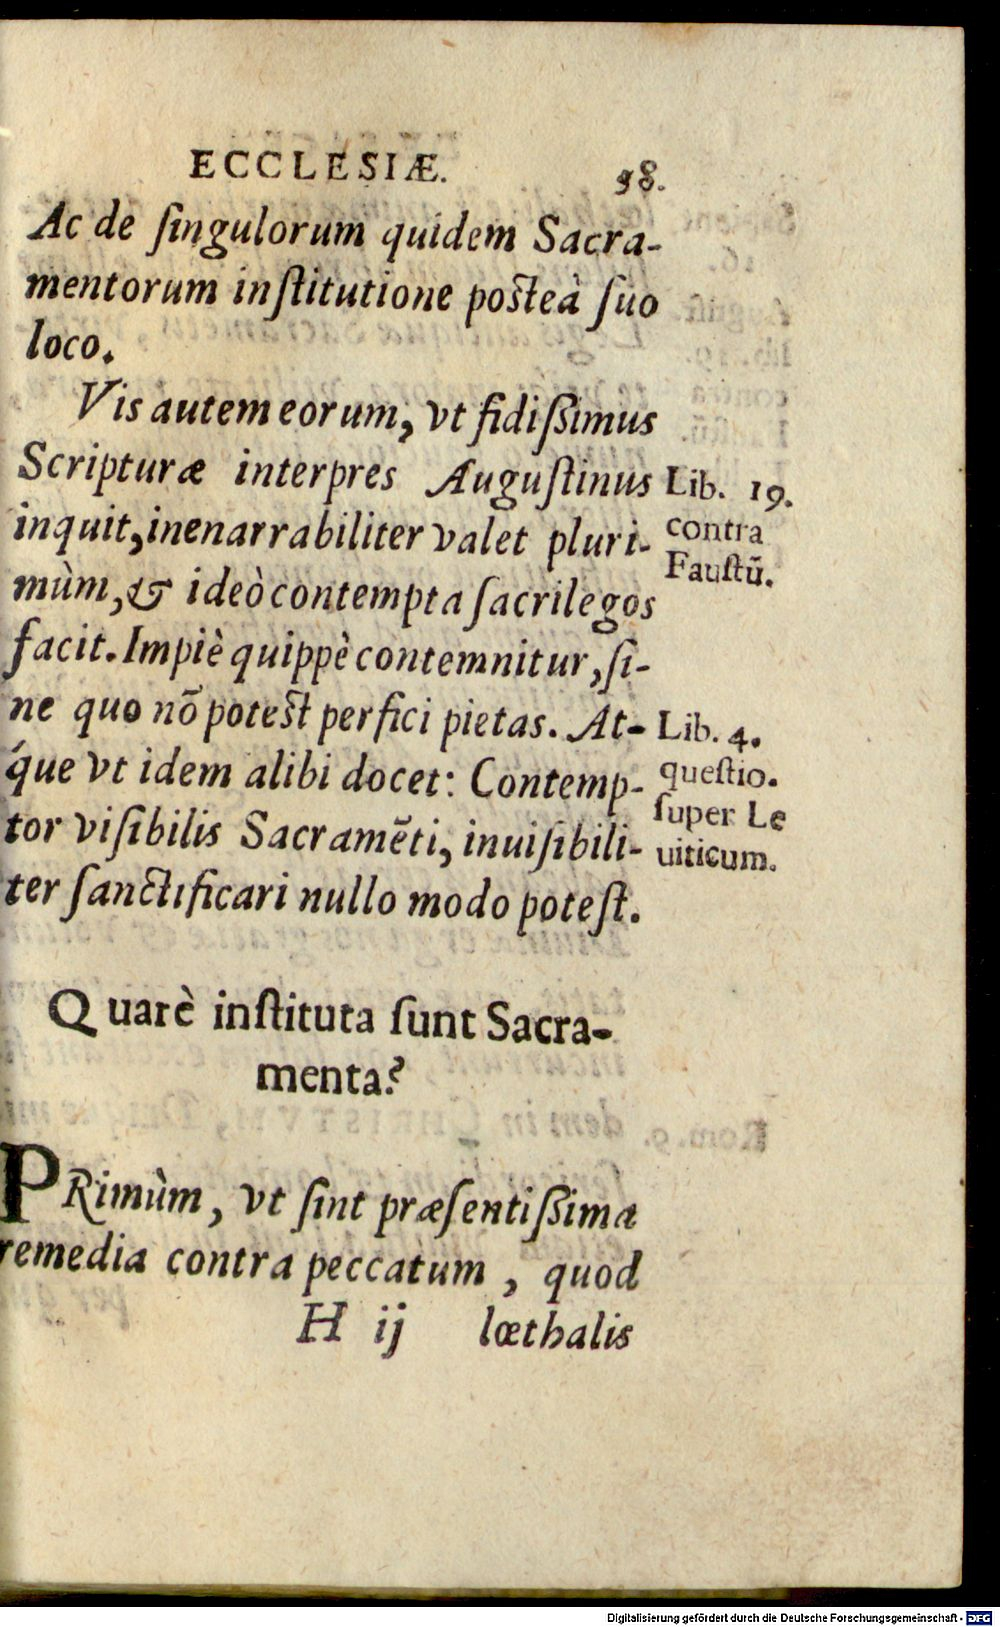 ECCLESIÆ. 98.
Ac de ſingulorum quidem Sacra-
mentorum inſtitutione poſteà ſuo
loco.
Vis autem eorum, vt fidiſsimus
Scripturæ interpres Auguſtinus
inquit, inenarrabiliter valet pluri-
mùm, & ideò contempta ſacrilegos
facit. Impiè quippè contemnitur, ſi-
ne quo nõ poteſt perfici pietas. At-
q́ue vt idem alibi docet: Contemp-
tor viſibilis Sacramẽti, inuiſibili-
ter ſanctificari nullo modo poteſt.
Lib. 19.
contra
Fauſtũ.
Lib. 4.
queſtio.
ſuper Le
uiticum.
Quarè inſtituta ſunt Sacra-
menta?
PRimùm, vt ſint præſentiſsima
remedia contra peccatum, quod
H ij lœthalis
Digitalisierung gefördert durch die Deutsche Forschungsgemeinschaft - DFG